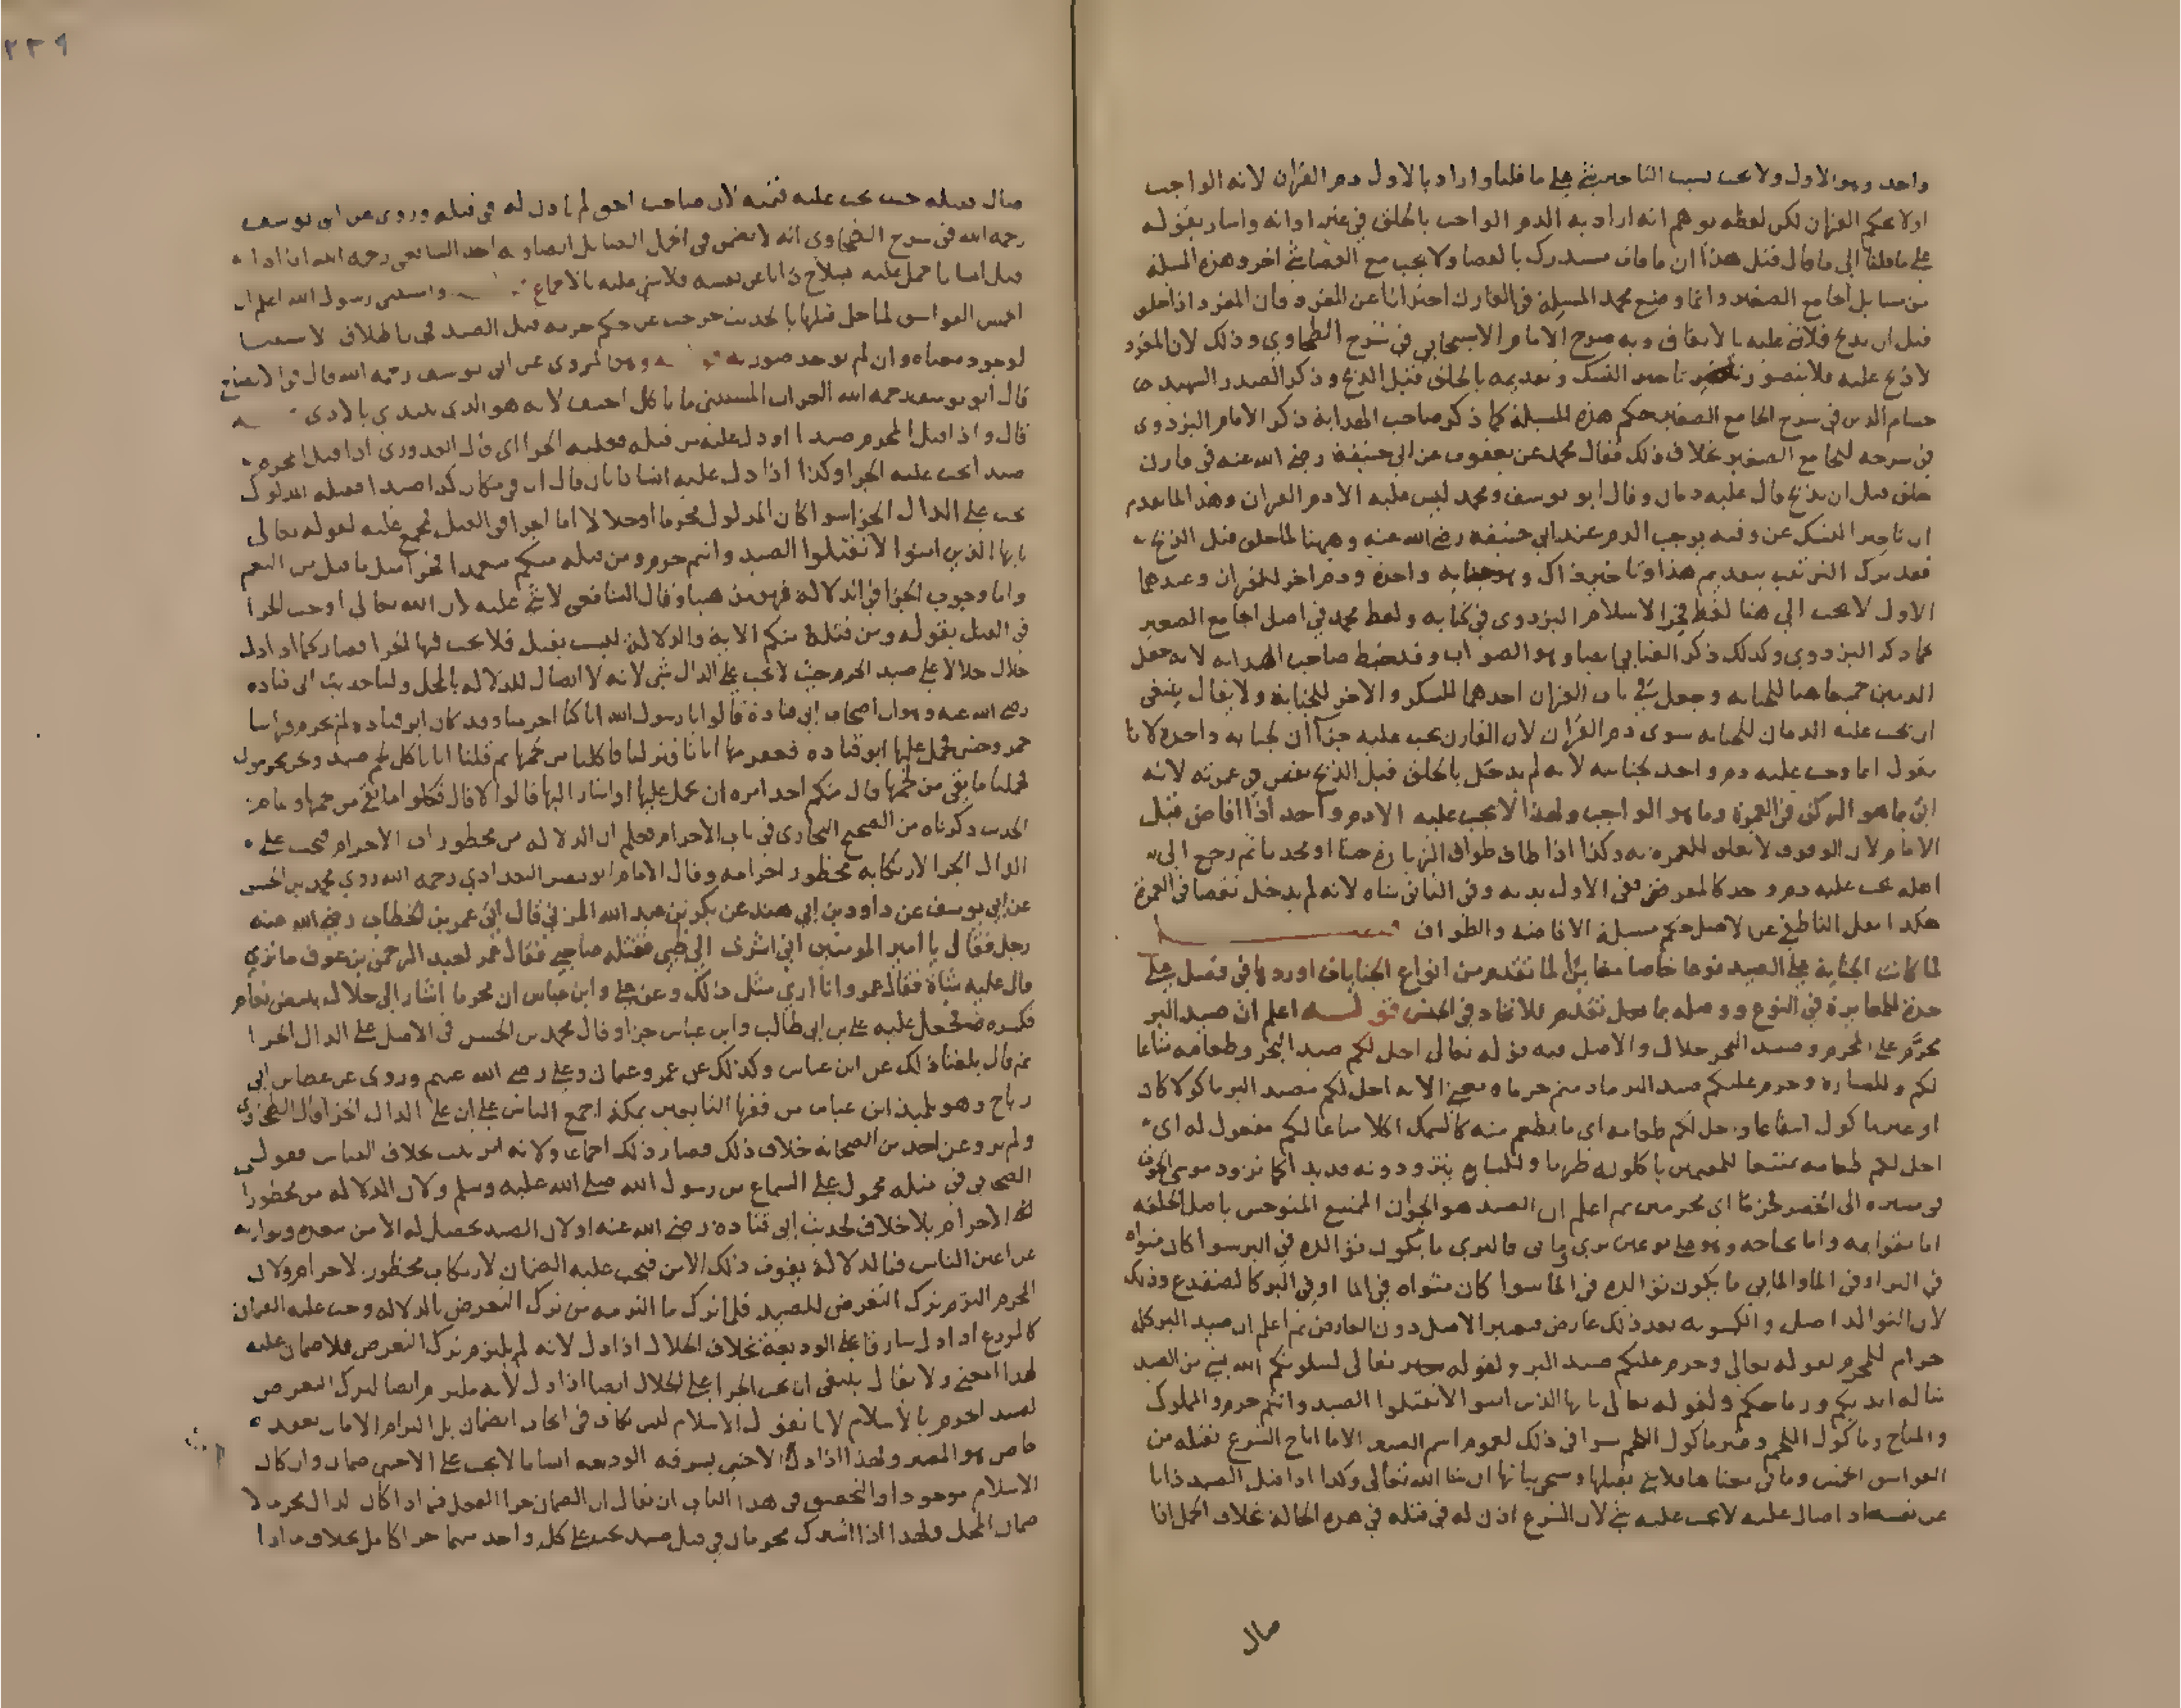 واحد وهو الاول ولا يجب بسبب التاخير شي على ما قلنا واراد بالاول دم القران لانه الواجب
اولا بحكم القران لكن لفظه يوهم انه اراد به الدم الواجب بالحلق في غير اوانه واشار بقوله
على ما قلنا الى ما قال قبل هذا ان ما فات مستدرك بالقضا ولا يجب مع القضا شي اخر وهذه المسلة
من مسايل الجامع الصغير وانما وضع محمد المسيلة في القارن احترازا عن المفرد فان المفرد اذا حلق
قبل ان يذبح فلا شي عليه بالاتفاق وبه صرح الامام الاسبيجابي في شرح الطحاوي وذلك لان المفرد
لا ذبح عليه فلا يتصور تاخير النسك وتقديمه بالحلق قبل الذبح وذكر الصدر الشهيد
حسام الدين في شرح الجامع الصغير حكم هذه المسيلة كما ذكر صاحب الهداية ذكر الامام البزدوي
في شرحه للجامع الصغير بخلاف ذلك فقال محمد عن يعقوب عن ابي حنيفة رضي الله عنه في قارن
حلق قبل ان يذبح قال عليه دمان وقال ابو يوسف ومحمد ليس عليه الا دم القران وهذا لما تقدم
ان تاخير النسك عن وقته يوجب الدم عند ابي حنيفة رضي الله عنه وههنا لما حلق قبل الذبح
فقد ترك الترتيب بتقديم هذا وتاخير ذاك وهو جنايه واحدة ودم اخر للقران وعندهما
الاول لا يجب الى هنا لفظ فخر الاسلام البزدوي في كتابه ولفظ محمد في اصل الجامع الصغير
كما ذكر البزدوي وكذلك ذكر العتابي ايضا وهو الصواب وقد خبط صاحب الهدايه لانه جعل
الدمين جميعا هنا للجنايه وجعل في باب القران احدهما للشكر والاخر للجناية ولا يقال ينبغي
ان يجب عليه الدمان للجنايه سوى دم القران لان القارن يجب عليه جزاآن لجنايه واحدة لانا
نقول انما وجب عليه دم واحد لجنايته لانه لم يدخل بالحلق قبل الذبح نقص في عمرته لانه
اتى بما هو الركن في العمرة وما هو الواجب ولهذا لا يجب عليه الا دم واحد اذا افاض قبل
الامام لان الوقوف لا تعلق للعمره به وكذا اذا طاف طواف الزيارة جنبا او محدثا ثم رجع الى
اهله يجب عليه دم واحد كالمفرد ففي الاول بدنه وفي الثاني شاه لانه لم يدخل نقصا في العمرة
هكذا نقل الناطفي عن الاصل حكم مسيلة الافاضه والطواف فصـــل
لما كانت الجناية على الصيد نوعا خاصا مغايرا لما تقدم من انواع الجنايات اوردها في فصل على
حدة للمغايرة في النوع ووصله بما قبل تقدم للاتحاد في الجنس قولـــه اعلم ان صيد البر
محرم على المحرم وصيد البحر حلال والاصل فيه قوله تعالى احل لكم صيد البحر وطعامه متاعا
لكم وللسيارة وحرم عليكم صيد البر ما دمتم حرما ومعنى الايه احل لكم مصيد البر ماكولا كان
او غير ماكول انتفاعا واحل لكم طعامه اي ما يطعم منه كالسمك اكلا متاعا لكم مفعول له اي
احل لكم طعامه تمتيعا للمقيمين ياكلونه طريا وللسياره يتزودونه قديدا كما تزود موسى الحوت
في مسيره الى الخضر حرما اي محرمين ثم اعلم ان الصيد هو الحيوان الممتنع المتوحش باصل الخلقه
اما بقوايمه واما بجناحه وهو على نوعين بري ومايي فالبري ما يكون توالده في البر سوا كان مثواه
في البر او في الما والمايي ما يكون توالده في الما سوا كان مثواه في الما او في البر كالضفدع وذلك
لان التوالد اصل والكسونه بعد ذلك عارض فيعتبر الاصل دون العارض ثم اعلم ان صيد البر كله
حرام للمحرم لقوله تعالى وحرم عليكم صيد البر ولقوله تعالى ليبلونكم الله بشي من الصيد
تناله ايديكم ورماحكم ولقوله تعالى يا ايها الذين امنوا لا تقتلوا الصيد وانتم حرم والمملوك
والمباح وماكول اللحم وغير ماكول اللحم سوا في ذلك لعموم اسم الصيد الا ما اباح الشرع بقتله من
الفواسق الخمس وما في معناها فلا شي بقتلها وسيجي بيانها ان شا الله تعالى وكذا اذا قتل الصيد ذابا
عن نفسه اذا صال عليه لا يجب عليه شي لان الشرع اذن له في قتله في هذه الحالة بخلاف الجمل اذا
صال
٢٢٩
صال فقتله حيث يجب عليه قيمته لان صاحب الحق لم ياذن له في قتله وروى عن ابي يوسف
رحمه الله في شرح الطحاوي انه لا يضمن في الجمل الصايل ايضا وبه اخذ الشافعي رحمه الله اذا
قتل انسانا حمل عليه بسلاح ذابا عن نفسه فلا شي عليه بالاجماع واستثنى رسول الله اعلم ان
الخمس الفواسق لما حل قتلها بالحديث خرجت عن حكم حرمه قتل الصيد
لوجود معناه وان لم يوجد صورته وهو المروي عن ابي يوسف رحمه الله قال
قال ابو يوسف رحمه الله الغراب المستثنى ما ياكل الجيف لانه هو الذي يبتدي بالاذى
قال واذا قتل المحرم صيدا او دل عليه من قتله فعليه الجزا اي قال القدوري اذا قتل المحرم
صيدا يجب عليه الجزا وكذا اذا دل عليه انسانا بان قال ان في مكان كذا صيدا فقتله المدلول
يجب على الدال الجزا سوا كان المدلول محرما او حلالا اما الجزا في القتل فمجمع عليه لقوله تعالى
يا ايها الذين امنوا لا تقتلوا الصيد وانتم حرم ومن قتله منكم متعمدا فجزا مثل ما قتل من النعم
واما وجوب الجزا في الدلالة فهو مذهبنا وقال الشافعي لا شي عليه لان الله تعالى اوجب الجزا
في القتل بقوله ومن قتله منكم الاية والدلالة ليست بقتل فلا يجب فيها الجزا فصار كما اذا دل
حلال حلالا على صيد الحرم حيث لا يجب على الدال شي لانه لا اتصال للدلاله بالمحل ولنا حديث ابي قتاده
رضي الله عنه وهو ان اصحاب ابي قتادة قالوا يا رسول الله انا كنا احرمنا وقد كان ابو قتاده لم يحرم فراينا
حمر وحش فحمل عليها ابو قتاده فعقر منها اتانا فنزلنا فاكلنا من لحمها ثم قلنا انا ناكل لحم صيد ونحن محرمون
فحملنا ما بقي من لحمها قال منكم احد امره ان يحمل عليها او اشار اليها قالوا لا قال فكلوا ما بقي من لحمها
الحديث ذكرناه من الصحيح البخاري في باب الاحرام فعلم ان الدلاله من محظورات الاحرام فيجب على
الدال الجزا لارتكابه محظور احرامه وقال الامام ابو نصر البغدادي رحمه الله روى محمد بن الحسن
عن ابي يوسف عن داود بن ابي هند عن بكر بن عبد الله المزني قال اتى عمر بن الخطاب رضي الله عنه
رجل فقال يا امير المومنين اني اشرت الى ظبي فقتله صاحبي فقال عمر لعبد الرحمن بن عوف ما ترى
قال عليه شاة فقال عمر وانا ارى مثل ذلك وعن علي وابن عباس ان محرما اشار الى حلال ببيض نعام
فكسره فجعل عليه علي بن ابي طالب وابن عباس جزا وقال محمد بن الحسن في الاصل على الدال الجزا
ثم قال بلغنا ذلك عن ابن عباس وكذلك عن عمر وعثمان وعلي رضي الله عنهم وروى عن عطاء بن ابي
رباح وهو تلميذ ابن عباس من فقها التابعين بمكة اجمع الناس على ان على الدال الجزا قال الطحاوي
ولم يرو عن احد من الصحابة خلاف ذلك فصار ذلك اجماعا ولانه امر يثبت بخلاف القياس فقول
الصحابي في مثله محمول على السماع من رسول الله صلى الله عليه وسلم ولان الدلاله من محظورات
الاحرام بلا خلاف لحديث ابي قتاده رضي الله عنه ولان الصيد يحصل له الامن ببعده وتواريه
عن اعين الناس فبالدلالة يفوت ذلك الامن فيجب عليه الضمان لارتكاب محظور الاحرام ولان
المحرم التزم ترك التعرض للصيد فلما ترك ما التزمه من ترك التعرض بالدلاله وجب عليه الضمان
كالمودع اذا دل سارقا على الوديعة بخلاف الحلال اذا دل لانه لم يلتزم ترك التعرض فلا ضمان عليه
لهذا المعنى ولا يقال ينبغي ان يجب الجزا على الحلال ايضا اذا دل لانه ملتزم ايضا لترك التعرض
لصيد الحرم بالاسلام لانا نقول الاسلام ليس بكاف في ايجاب الضمان بل التزام الامان بعقد
خاص هو المعتبر ولهذا اذا دل الاجنبي بسرقه الوديعه انسانا لا يجب على الاجنبي ضمان وان كان
الاسلام موجودا والتحقيق في هذا الباب ان يقال ان الضمان جزا الفعل فيما اذا كان الدال محرما لا
ضمان المحل ولهذا اذا اشترك محرمان في قتل صيد يجب على كل واحد منهما جزا كامل بخلاف ما اذا